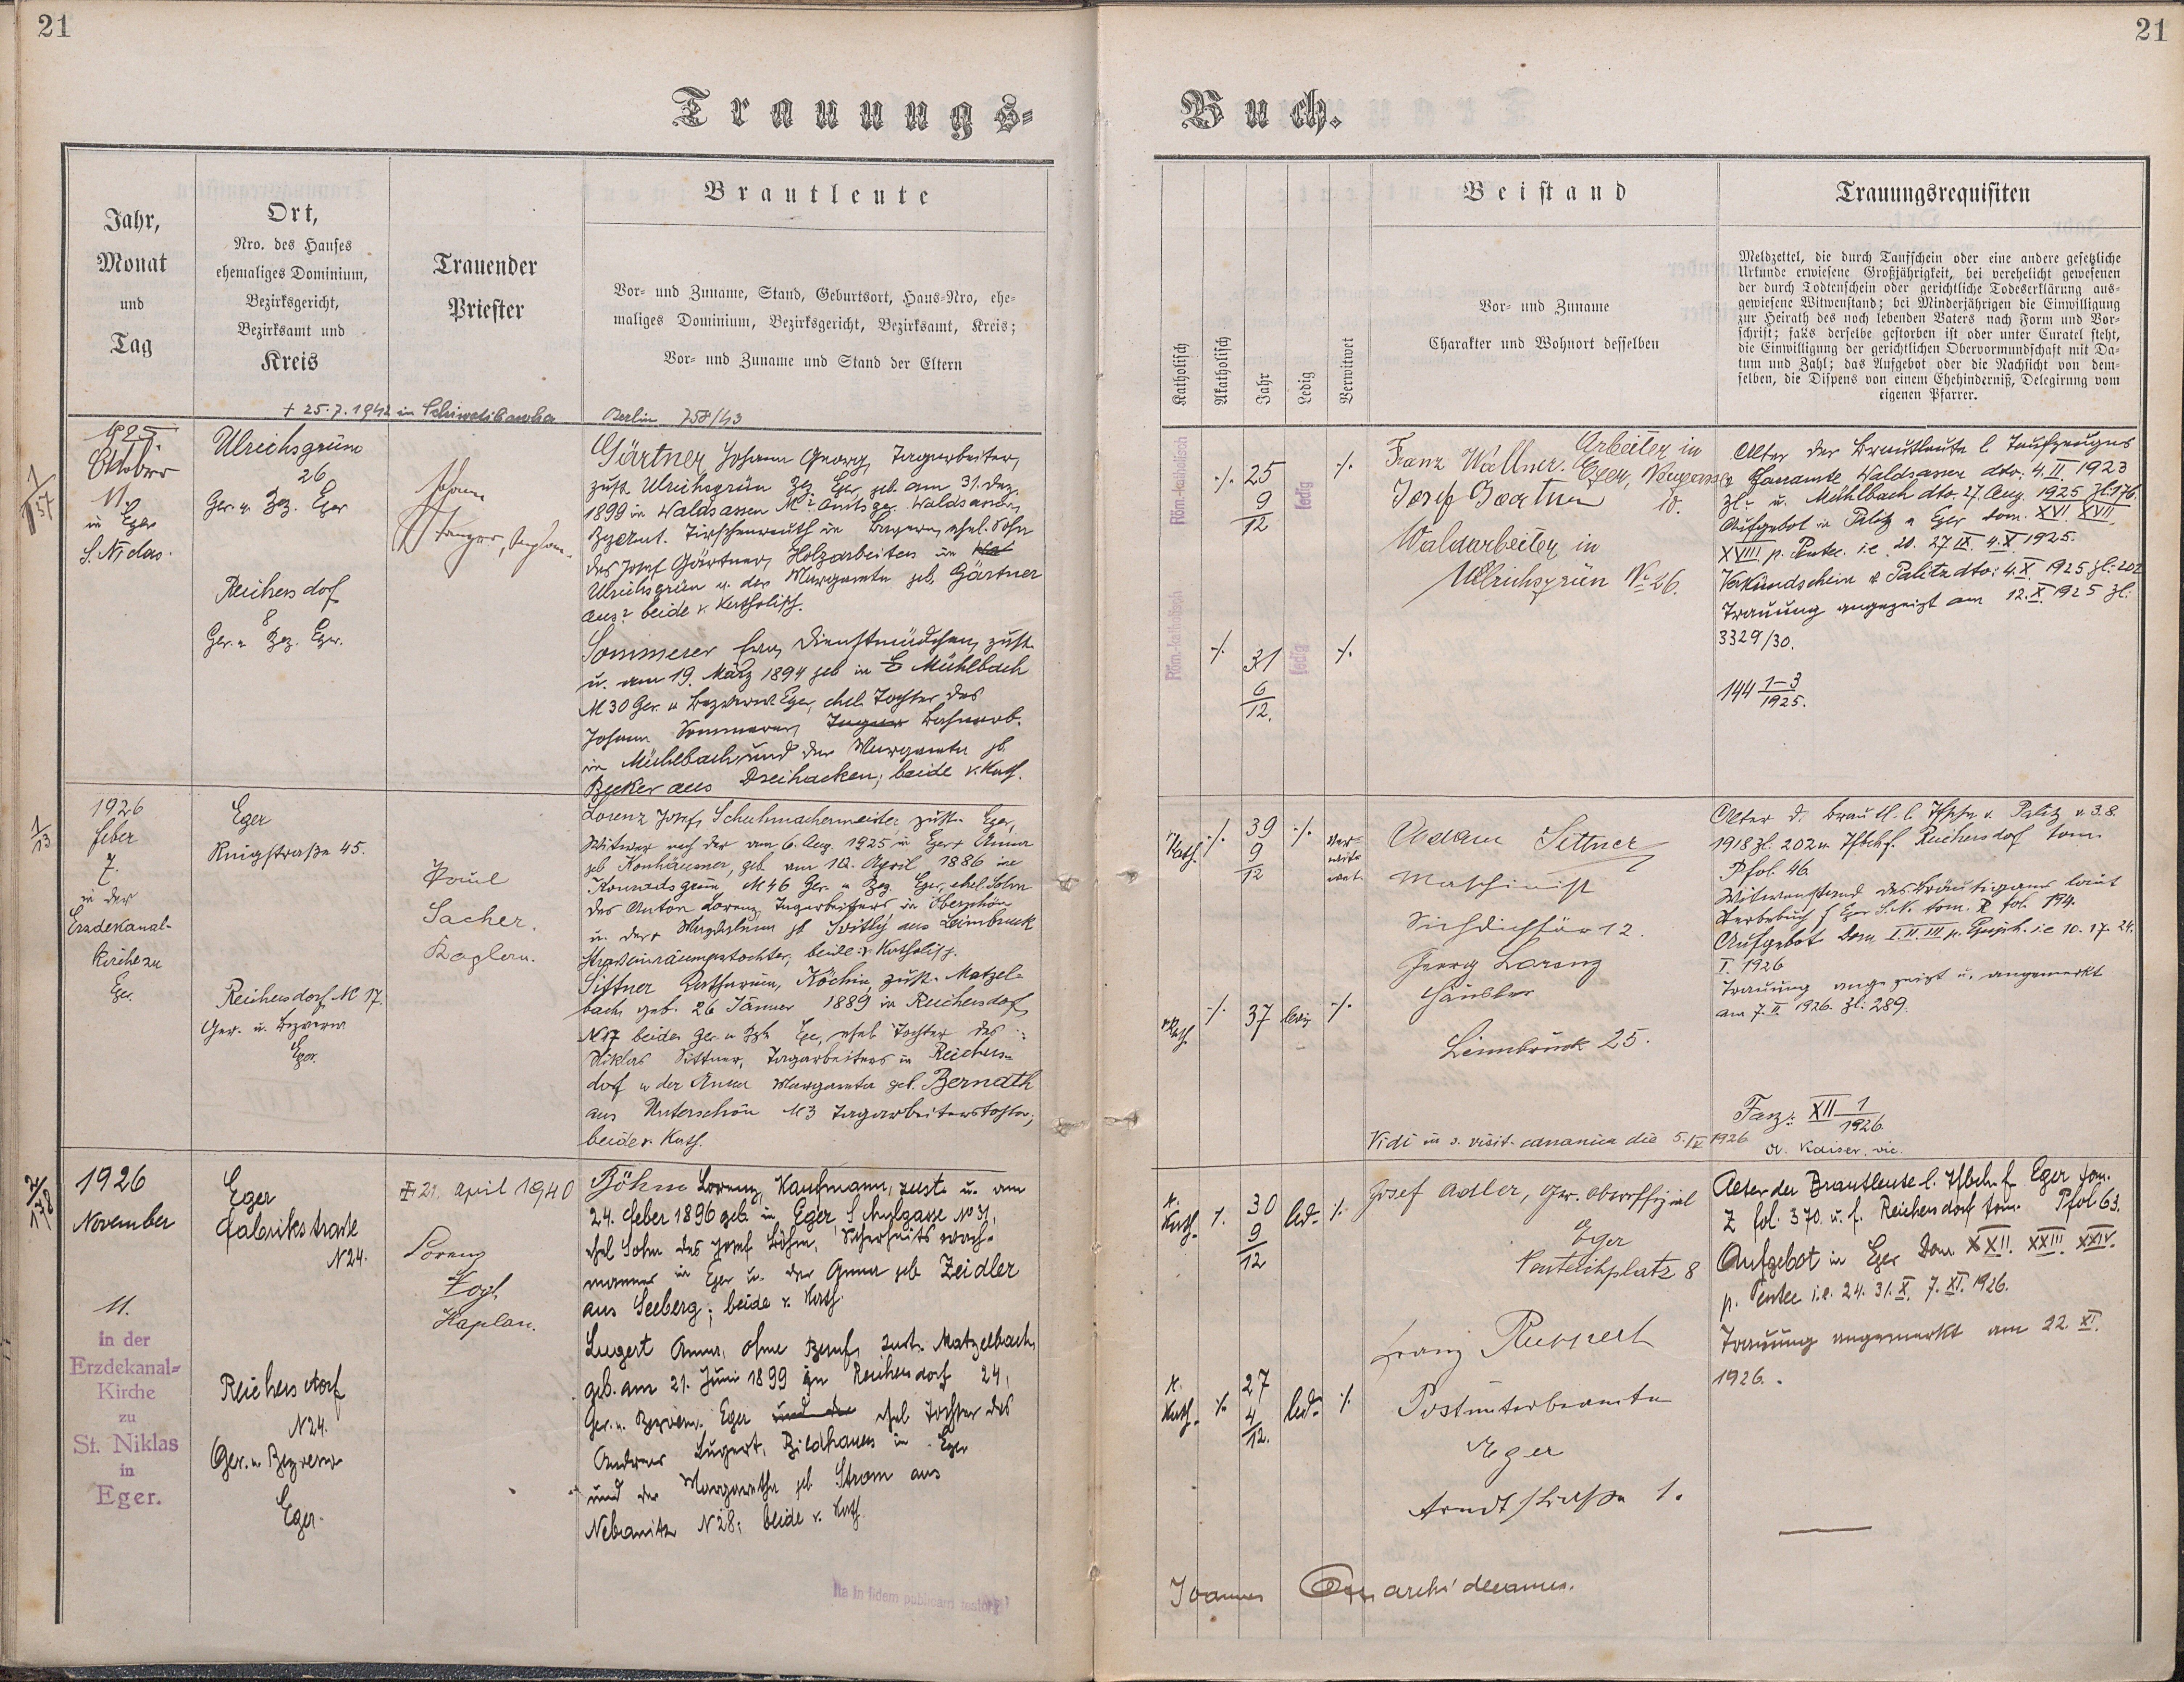 21
21
Trauungs-
Buch.
Jahr,
Monat
und
Tag
Ort,
Nro. des Hauses
ehemaliges Dominium,
Bezirksgericht,
Bezirksamt und
Kreis
Trauender
Priester
Brautleute
Vor- und Zuname, Stand, Geburtsort, Haus-Nro, ehe-
maliges Dominium, Bezirksgericht, Bezirksamt, Kreis;
Vor- und Zuname und Stand der Eltern
Katholisch
Akatholisch
Jahr
Ledig
Verwitwet
Beistand
Vor- und Zuname
Charakter und Wohnort desselben
Trauungsrequisiten
Meldzettel, die durch Taufschein oder eine andere gesetzliche
Urkunde erwiesene Großjährigkeit, bei verehelicht gewesenen
der durch Todtenschein oder gerichtliche Todeserklärung aus-
gewiesene Witwenstand; bei Minderjährigen die Einwilligung
zur Heirath des noch lebenden Vaters nach Form und Vor-
schrift; falls derselbe gestorben ist oder unter Curatel steht,
die Einwilligung der gerichtlichen Obervormundschaft mit Da-
tum und Zahl; das Aufgebot oder die Nachsicht von dem-
selben, die Dispens von einem Ehehinderniß, Delegirung vom
eigenen Pfarrer.
+ 25.7.1942 in Berlin 758/43
1925.
Oktober
11.
in Eger
S. Niclas.
Ulrichsgrün
26
Ger. u. Bez. Eger
Reichersdorf
8
Ger. u. Bez. Eger.
Gärtner Johann Georg, Tagarbeiter,
zust. Ulrichsgrün Bez. Eger, geb. am 31. Dez.
1899 in Waldsassen Amtsger. Waldsassen,
Bezamt. Tirschenreuth in Bayern, ehel. Sohn
des Josef Gärtner, Holzarbeiters in
Ulrichsgrün u. der Margareta geb. Gärtner
beide r. Katholisch.
Sommerer Eva, Dienstmädchen, zust.
u. am 19. März 1894 geb in Mühlbach
N 30 Ger. u Bezverw. Eger, ehel. Tochter des
Johann Sommerer, Bahnarb.
in Mühlbach und der Margareta gb.
Becker aus Dreihacken; beide r. Kath.
Röm.-katholisch
./.
25
9/12
ledig
./.
Röm.-katholisch
./.
31
6/12.
ledig
./.
Franz Wallner. Arbeiter in
Eger,
10.
Josef Gaertner
Waldarbeiter in
Ullrichsgrün No 26.
Alter der Brautleute l. Taufzeugnis
Pfarramte Waldsassen dto: 4. II. 1923
u. Mühlbach dto. 27. Aug. 1925 Zl. 176.
Aufgebot in Palitz u Eger dom. XVI. XVII.
XVIII p. Pentec. i.e. 20. 27. IX. 4. X. 1925.
Verkündschein Palitz dto: 4. X. 1925 Zl: 202
Trauung angezeigt am 12. X. 1925 Zl:
3329/30.
144 1-3/1925.
1/13
1926
Feber
7.
in der
Erzdekanal-
kirche zu
Eger.
Eger
Ringstraße 45.
Reichersdorf N 17.
Ger. u. Bezverw
Eger.
Paul
Sacher.
Kaplan.
Lorenz Josef, Schuhmachermeister zust. Eger,
Witwer nach der am 6. Aug. 1925 in Eger + Anna
geb Konhäusner, geb. am 10. April 1886 in
Konradsgrün N 46 Ger. u Bez. Eger, ehel. Sohn
des Anton Lorenz, Tagarbeiters in Oberschön
u. der Magdalena gb aus Leimbruck
Straßeinräumerstochter, beide r. Katholisch.
Sittner Katharina, Köchin, zust. Matzel-
bach, geb. 26 Jänner 1889 in Reichersdorf
N 17 beides Ger. u Bzk Eger, ehel Tochter des
Niklas Sittner, Tagarbeiters in Reichers-
dorf u der Anna Margareta geb. Bernath
aus Unterschön N 3 Tagarbeiterstochter;
beide r. Kath.
Kath.
./.
39
9/12
./.
ver-
wit-
wet.
Kath.
./.
37
ledig
./.
Adam Sittner
Maschinist
Sichdichfür 12.
Georg Lorenz
Häusler
Leimbruck 25.
Vidi in s. visit. canonica die 5. IX 1926
A. Kaiser, vic.
Alter d. Brautl. l. Tfsche v. Palitz v. 3.8.
1918 Zl: 202 u. Tfbch f. Reichersdorf tom.
P fol. 46
Witwenstand des Bräutigams laut
Sterbebuch f Eger S.N. tom. R fol. 194.
Aufgebot Dom I. II. III p. Epiph. i.e 10. 17. 24.
I. 1926
Trauung angezeigt u. angemerkt
am 7. II 1926. Zl: 289.
Fasz: XII 1/1926
2/178
1926
November
11.
in der
Erzdekanal-
Kirche
zu
St. Niklas
in
Eger.
Eger
Fabrikstraße
N 24.
Reichersdorf
N 24.
Ger. u. Bezverw
Eger.
+ 21. April 1940
Lorenz
Vogl,
Kaplan.
Böhm Lorenz, Kaufmann, zust. u. am
24. Feber 1896 geb. in Eger, Schulgasse No 31,
ehel Sohn des Josef Böhm, Sicherheitswach-
mannes in Eger u. der Anna geb Zeidler
aus Seeberg; beide r. Kath.
Lugert Anna, ohne Beruf, zust. Matzelbach,
geb. am 21. Juni 1899 in Reichersdorf 24,
Ger. u. Bezverw. Eger und der ehel Tochter des
Andreas Lugert, Bildhauers in Eger
und der Margaretha geb Strom aus
Nebanitz N 28; beide r. Kath.
Ita in fidem publicam testor
r.
Kath.
./.
30
9/12
led.
./.
r.
Kath.
./.
27
4/12.
led.
./.
Josef Adler, Ger. Oberoffizial
Eger
8
Franz Ruppert
Postunterbeamte
Eger
Arndtstraße 1.
Alter der Brautleute l. Tfbch. f. Eger tom.
Z fol. 370. u. f. Reichersdorf tom. P fol 63.
Aufgebot in Eger Dom. XXII. XXIII. XXIV.
p. Pentec i.e. 24. 31. X. 7. XI. 1926.
Trauung angemerkt am 22. XI.
1926.
Joannes archidecanus.